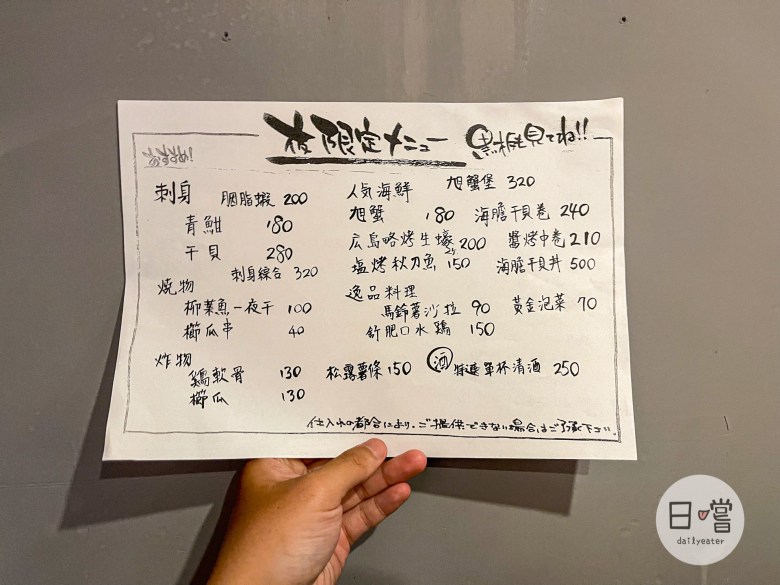 夜限定メニュー 黒板も見てね!!
おすすめ!
刺身 胭脂蝦 200
青魽 180
干貝 280
刺身綜合 320
焼物
柳葉魚一夜干 100
櫛瓜串 40
炸物
鷄軟骨 130
櫛瓜 130
松露薯條 150
人気海鮮 旭蟹堡 320
旭蟹 180 海膽干貝卷 240
広島略烤生蠔 200 醬烤中卷 210
塩烤秋刀魚 150 海膽干貝丼 500
逸品料理
馬鈴薯沙拉 90 黃金泡菜 70
舒肥口水鶏 150
酒 特選單杯清酒 250
仕入れの都合により、ご提供できない場合はご了承下さい。
日嚐
dailyeater